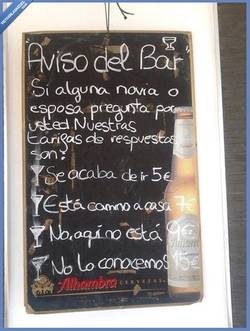 Aviso del Bar
Si alguna novia o
esposa pregunta por
usted Nuestras
tarifas de respuestas
son:
Se acaba de ir 5€
Está camino a casa 7€
No, aquí no está 9€
No lo conocemos 15€
Alhambra CERVEZAS